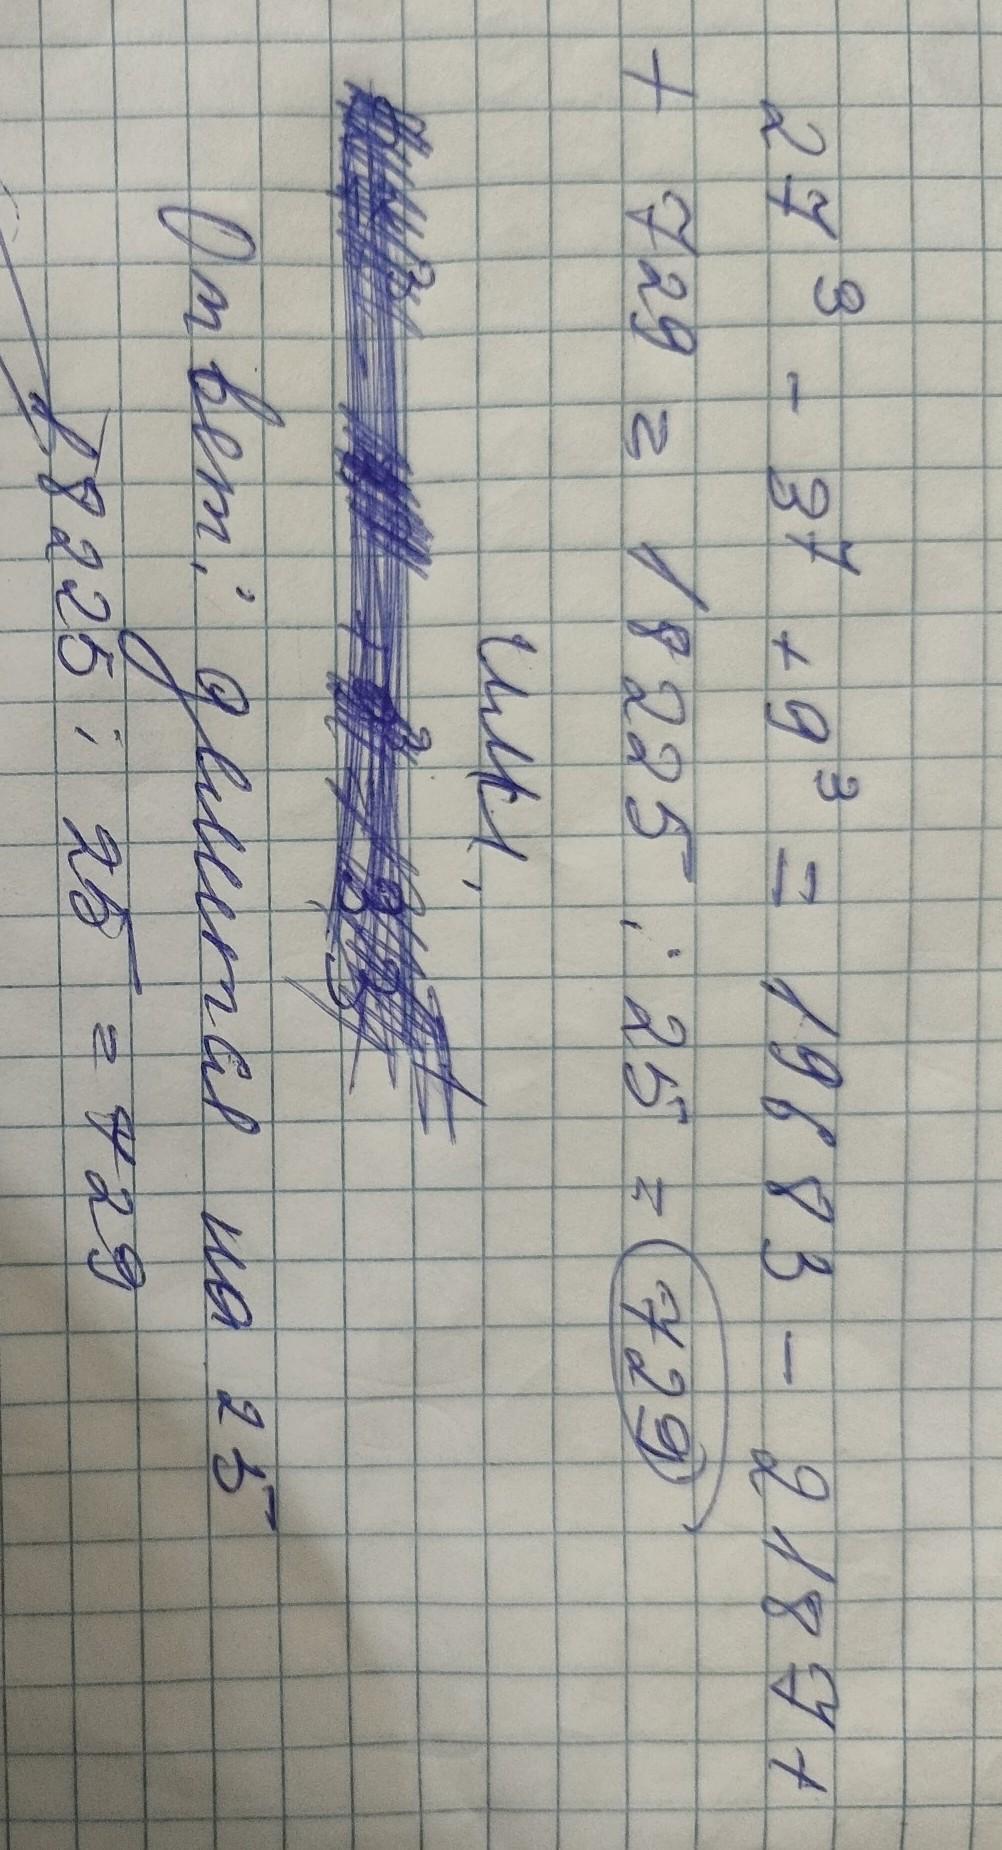 27³ - 3⁷ + 9³ = 19683 - 2187 +
+ 729 = 18225 : 25 = 729
или,
Ответ: делится на 25
18225 : 25 = 729